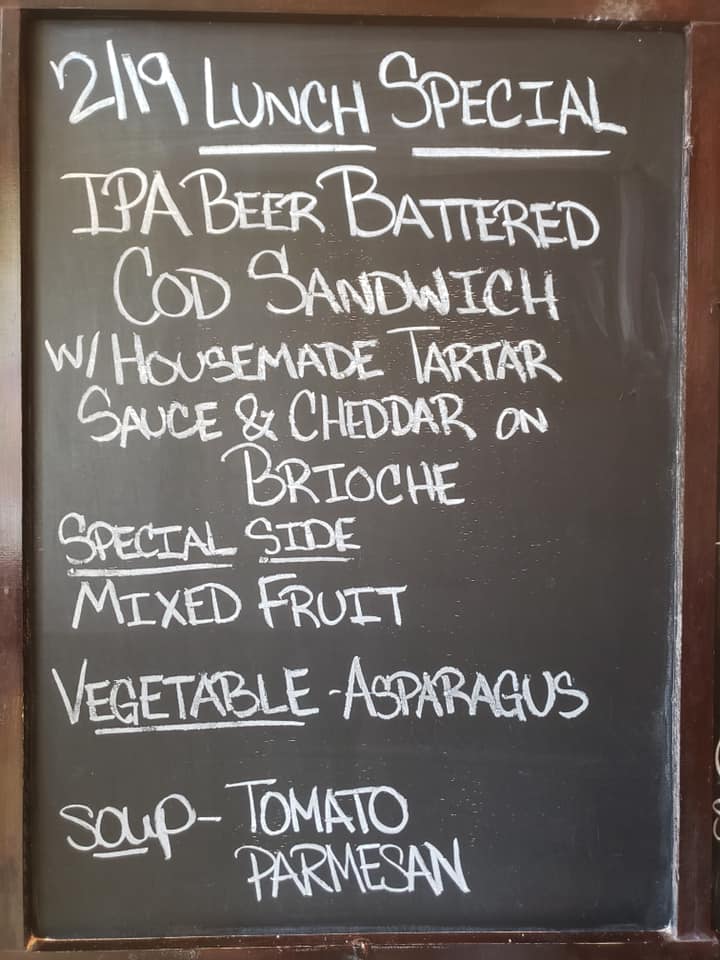 2/19 LUNCH SPECIAL
IPA BEER BATTERED
COD SANDWICH
W/ HOUSEMADE TARTAR
SAUCE & CHEDDAR ON
BRIOCHE
SPECIAL SIDE
MIXED FRUIT
VEGETABLE - ASPARAGUS
SOUP - TOMATO
PARMESAN